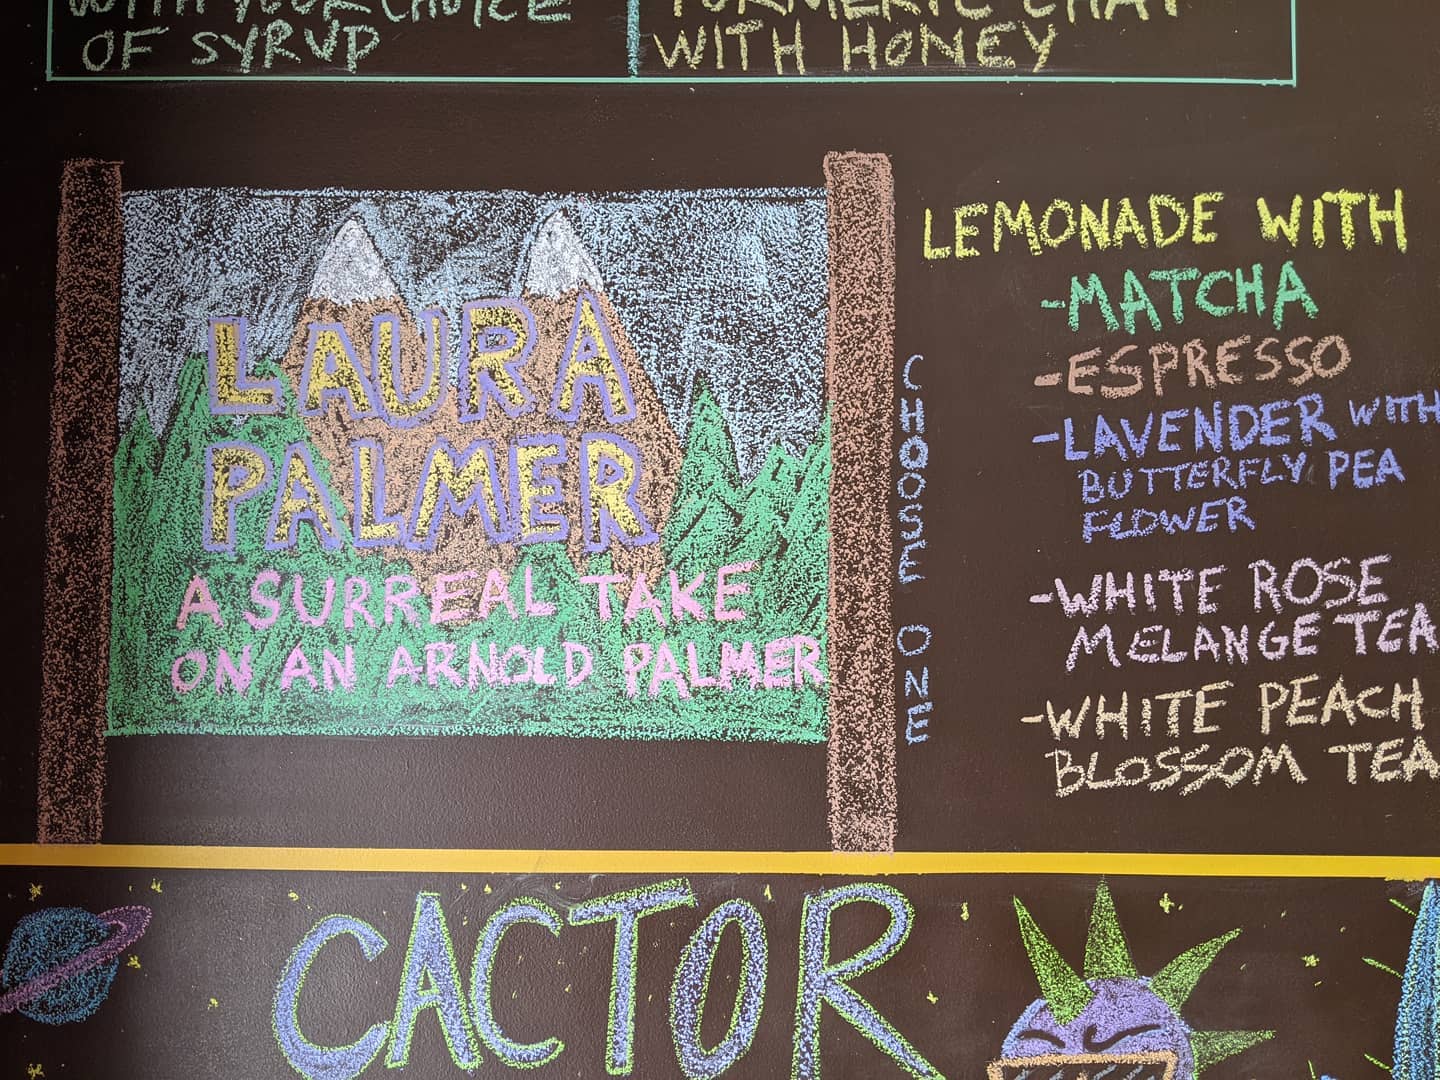 WITH YOUR CHOICE
OF SYRUP
TURMERIC CHAI
WITH HONEY
LAURA
PALMER
A SURREAL TAKE
ON AN ARNOLD PALMER
CHOOSE ONE
LEMONADE WITH
-MATCHA
-ESPRESSO
-LAVENDER WITH
BUTTERFLY PEA
FLOWER
-WHITE ROSE
MELANGE TEA
-WHITE PEACH
BLOSSOM TEA
CACTOR